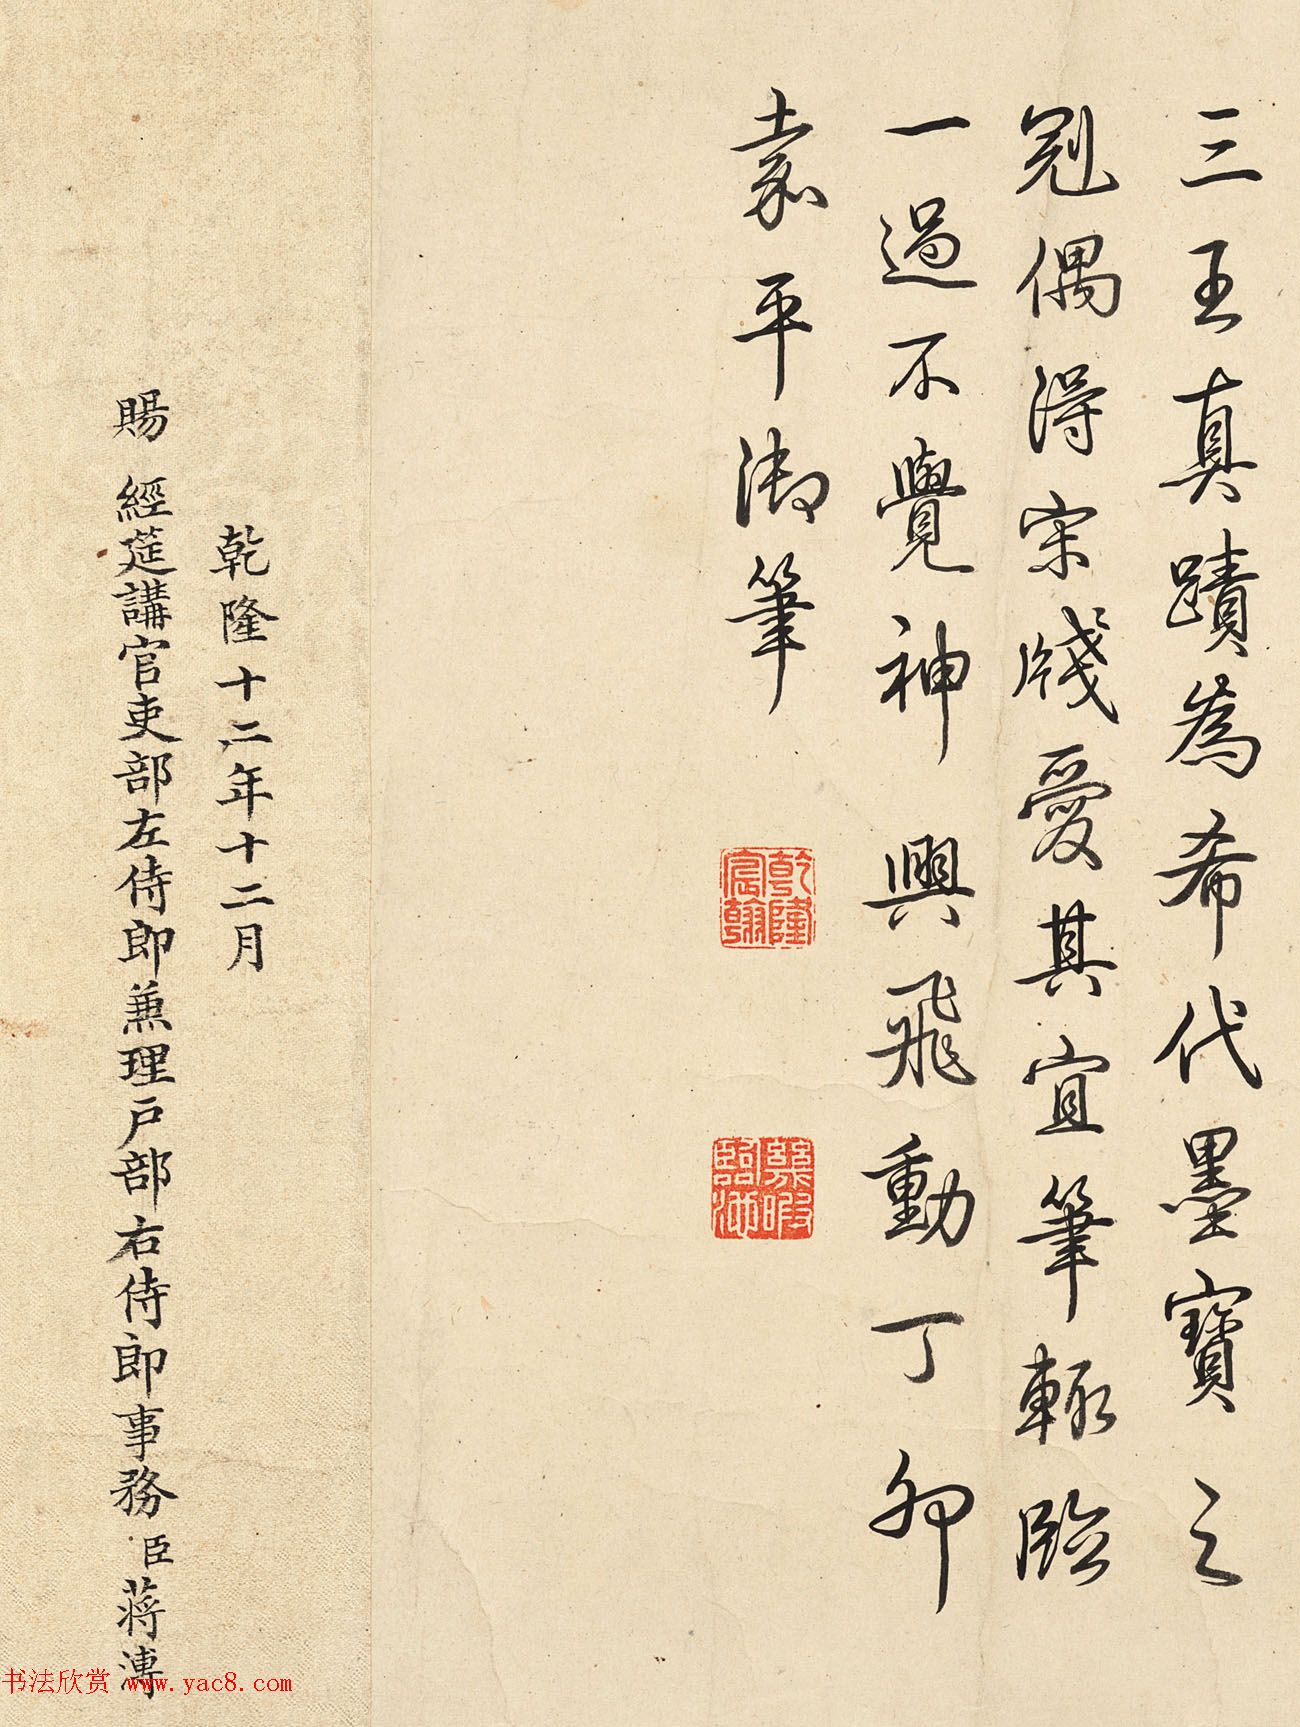 三王真蹟為希代墨寶之
冠偶得宋牋愛其宜筆輒臨
一過不覺神興飛動丁卯
嘉平御筆
乾隆宸翰
幾暇臨池
乾隆十二年十二月
賜 經筵講官吏部左侍郎兼理戶部右侍郎事務臣蔣溥
书法欣赏 www.yac8.com